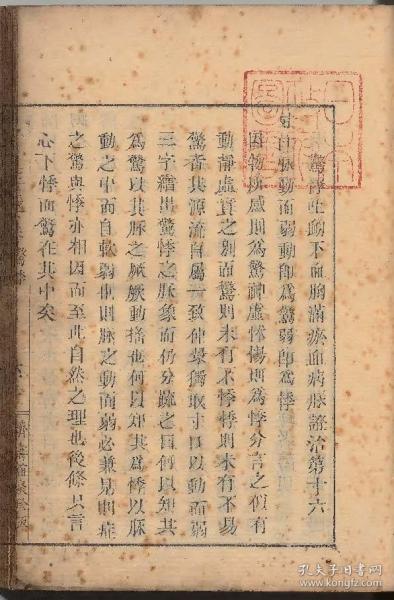 驚悸吐衄下血胸滿瘀血病脈證治第十六
寸口脈動而弱動卽為驚弱卽為悸
因物所感則為驚神虛怵惕則為悸分言之似有
動靜虛實之別而驚則未有不悸悸則未有不易
驚者其源流自屬一致仲景獨取寸口以動而弱
三字繪出驚悸之脈象而仍分疏之曰何以知其
為驚以其脈之厥厥動搖也何以知其為悸以脈
動之中而自軟弱也則脈之動而弱必兼見則症
之驚與悸亦相因而至此自然之理也後條只言
心下悸而驚在其中矣
孔夫子旧书网
www.kongfz.com